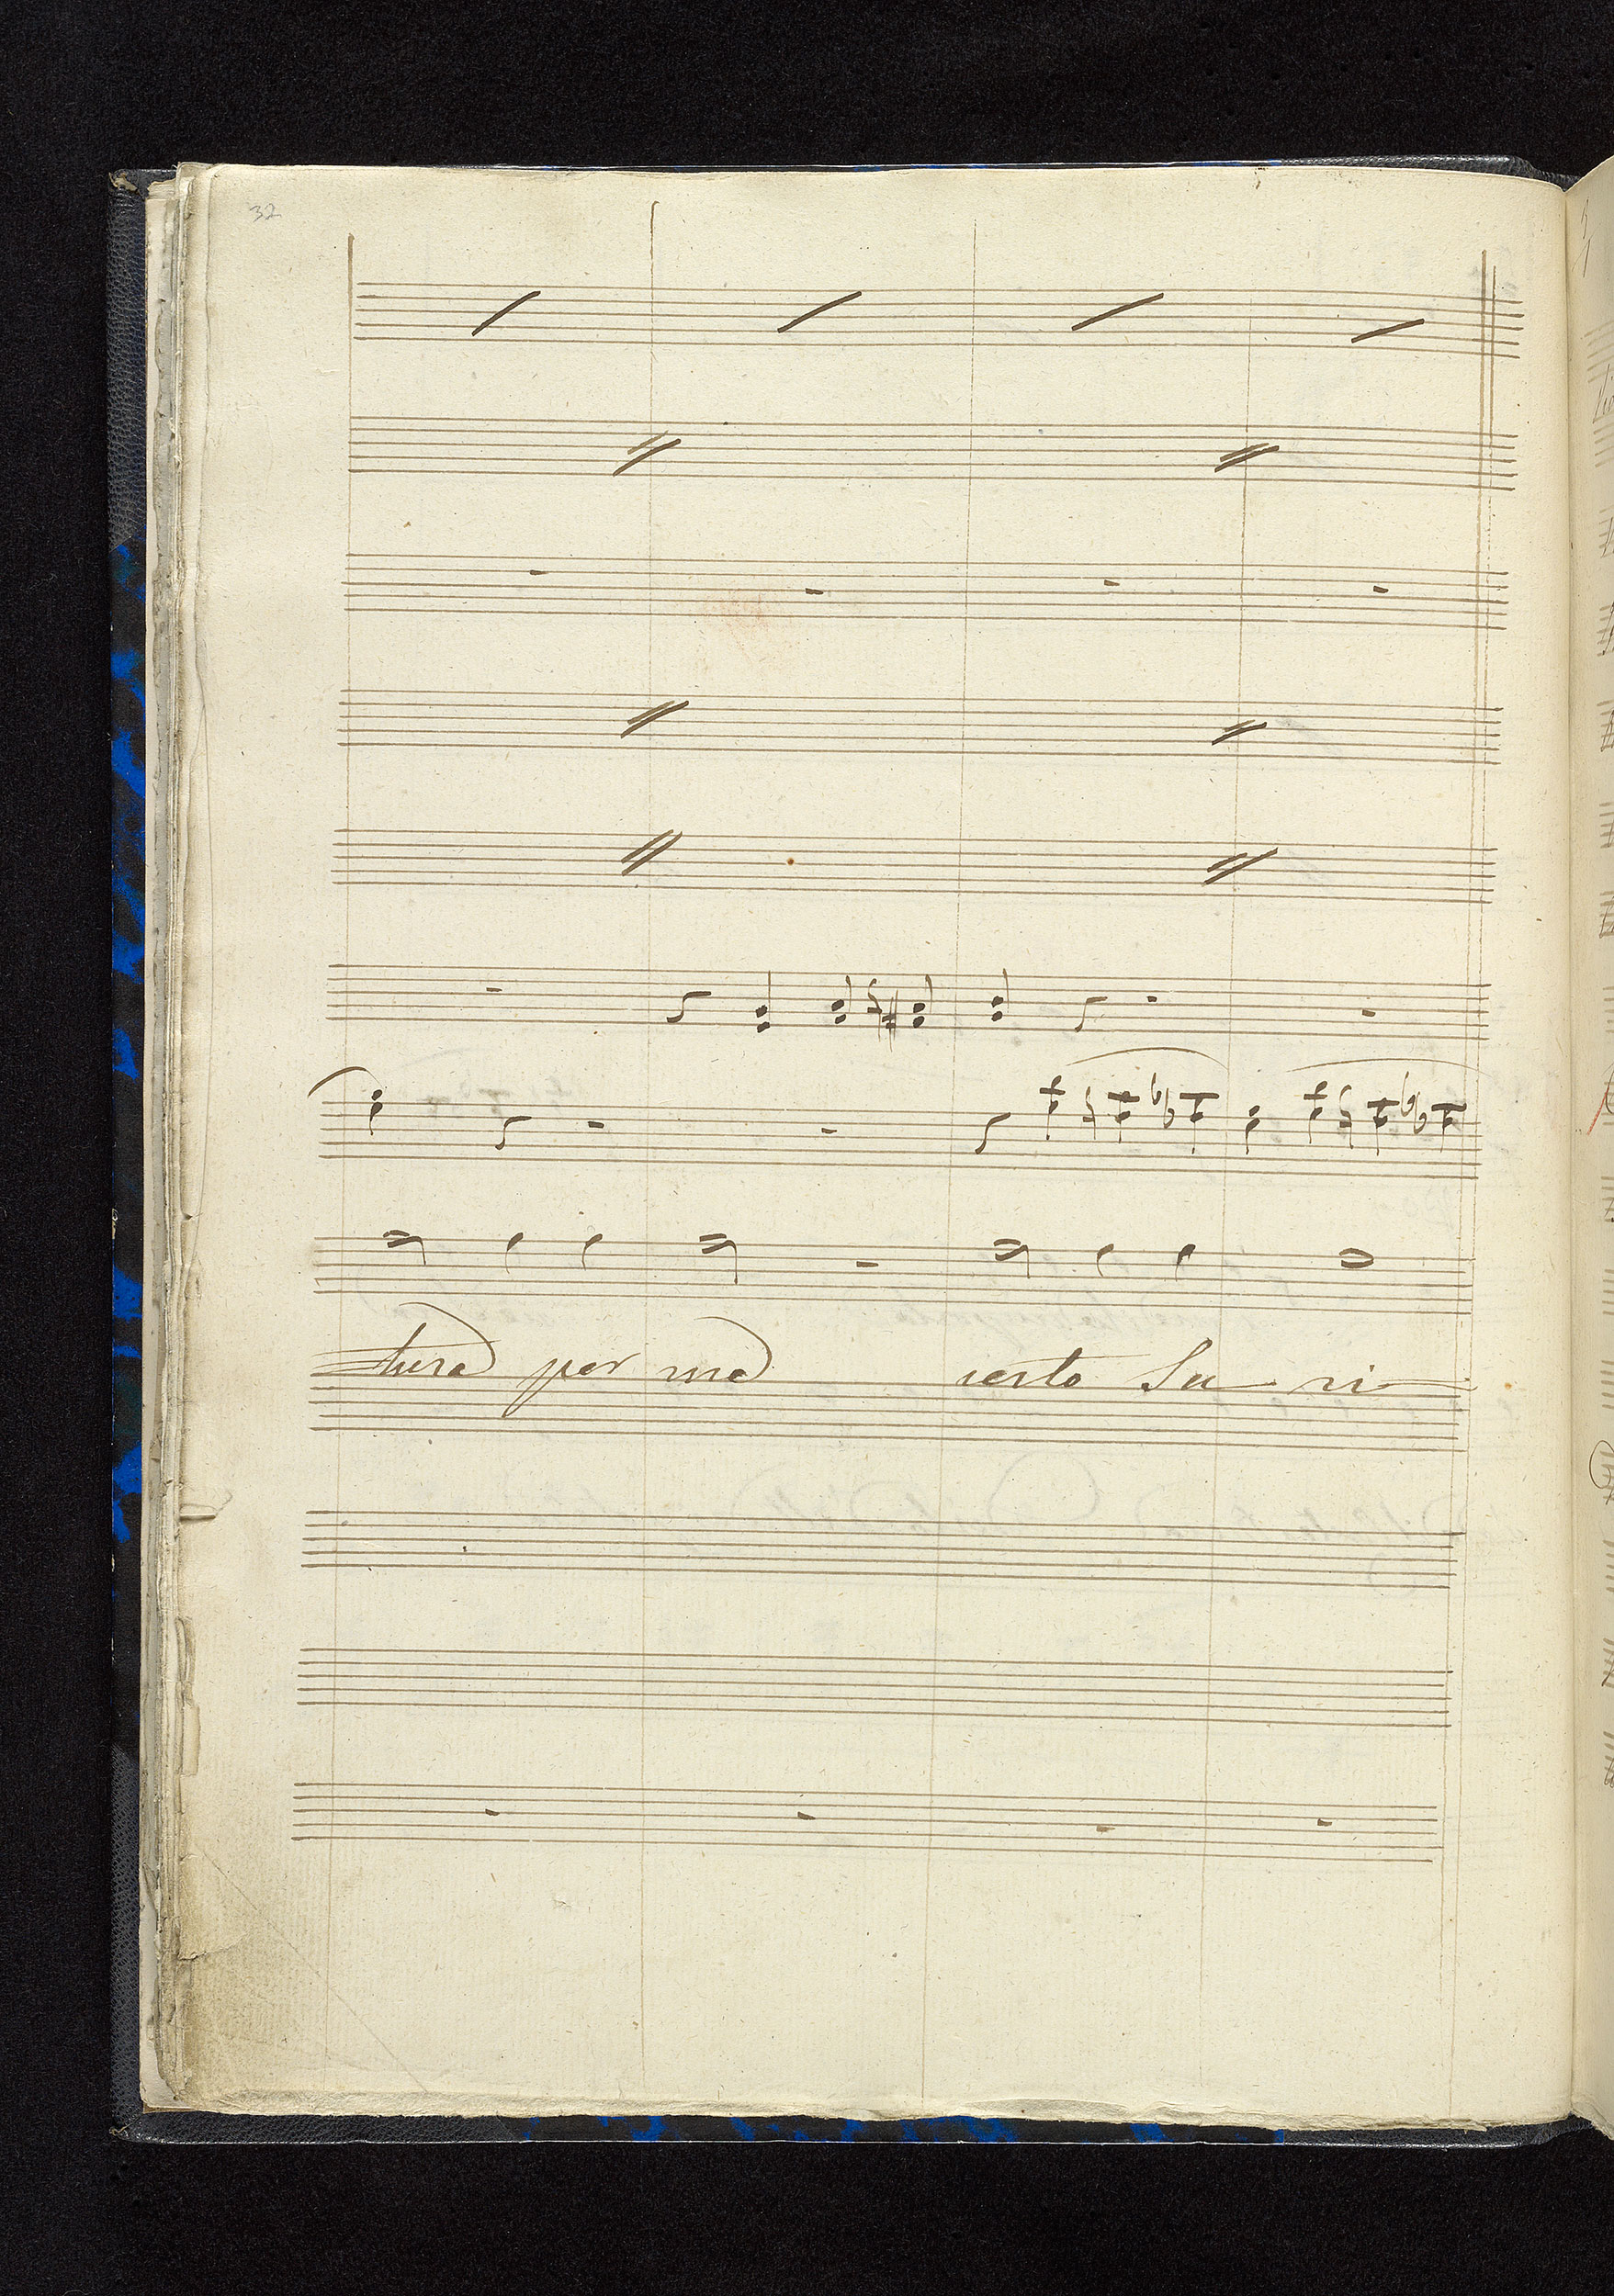 32
tura per me certo Su ri